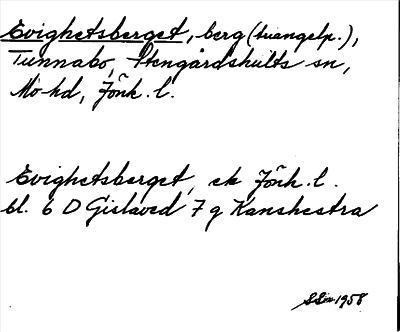 Evighetsberget, berg (triangelp.),
Tunnabo, Stengårdshults sn,
Mo hd, Jönk. l.
Evighetsberget, ek Jönk. l.
bl. 6 D Gislaved 7 g Kanshestra
1958